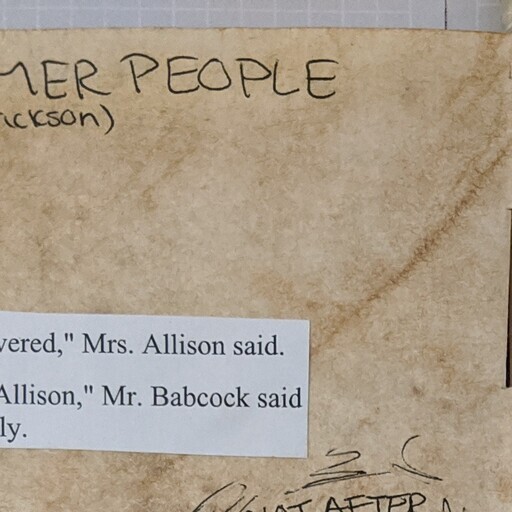 MER PEOPLE
ickson)
vered," Mrs. Allison said.
Allison," Mr. Babcock said
ly.
AFTER